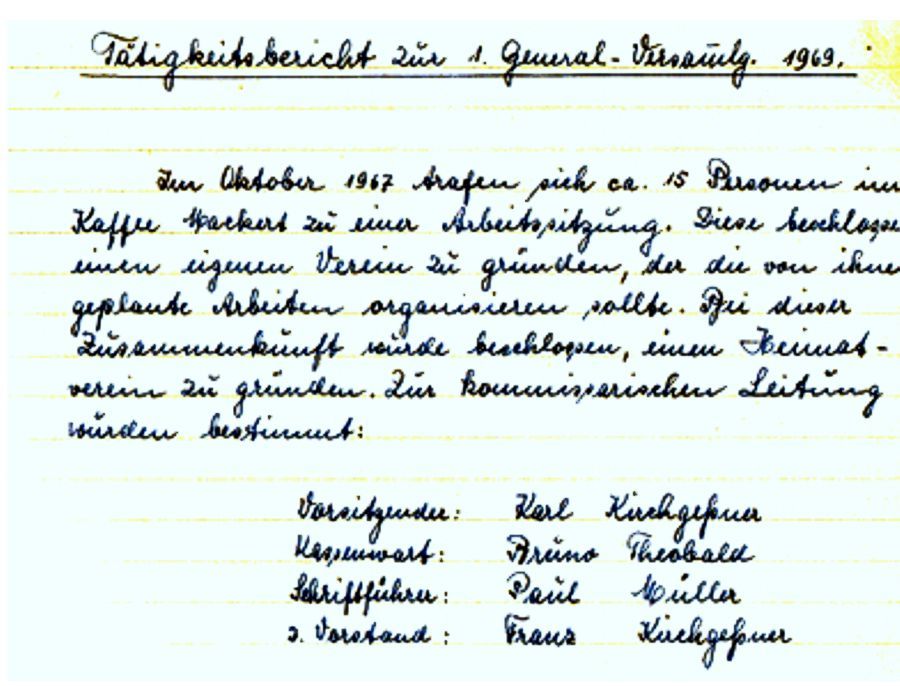 Tätigkeitsbericht zur 1. General-Versamlg. 1969.
Im Oktober 1967 trafen sich ca. 15 Personen im
Kaffee Mackert zu einer Arbeitssitzung. Diese beschlosse
einen eigenen Verein zu gründen, der die von ihne
geplante Arbeiten organisieren sollte. Bei dieser
Zusammenkunft wurde beschlossen, einen Heimat-
verein zu gründen. Zur kommissarischen Leitung
wurden bestimmt:
Vorsitzender: Karl Kirchgeßner
Kassenwart: Bruno Theobald
Schriftführer: Paul Müller
2. Vorstand: Franz Kirchgeßner